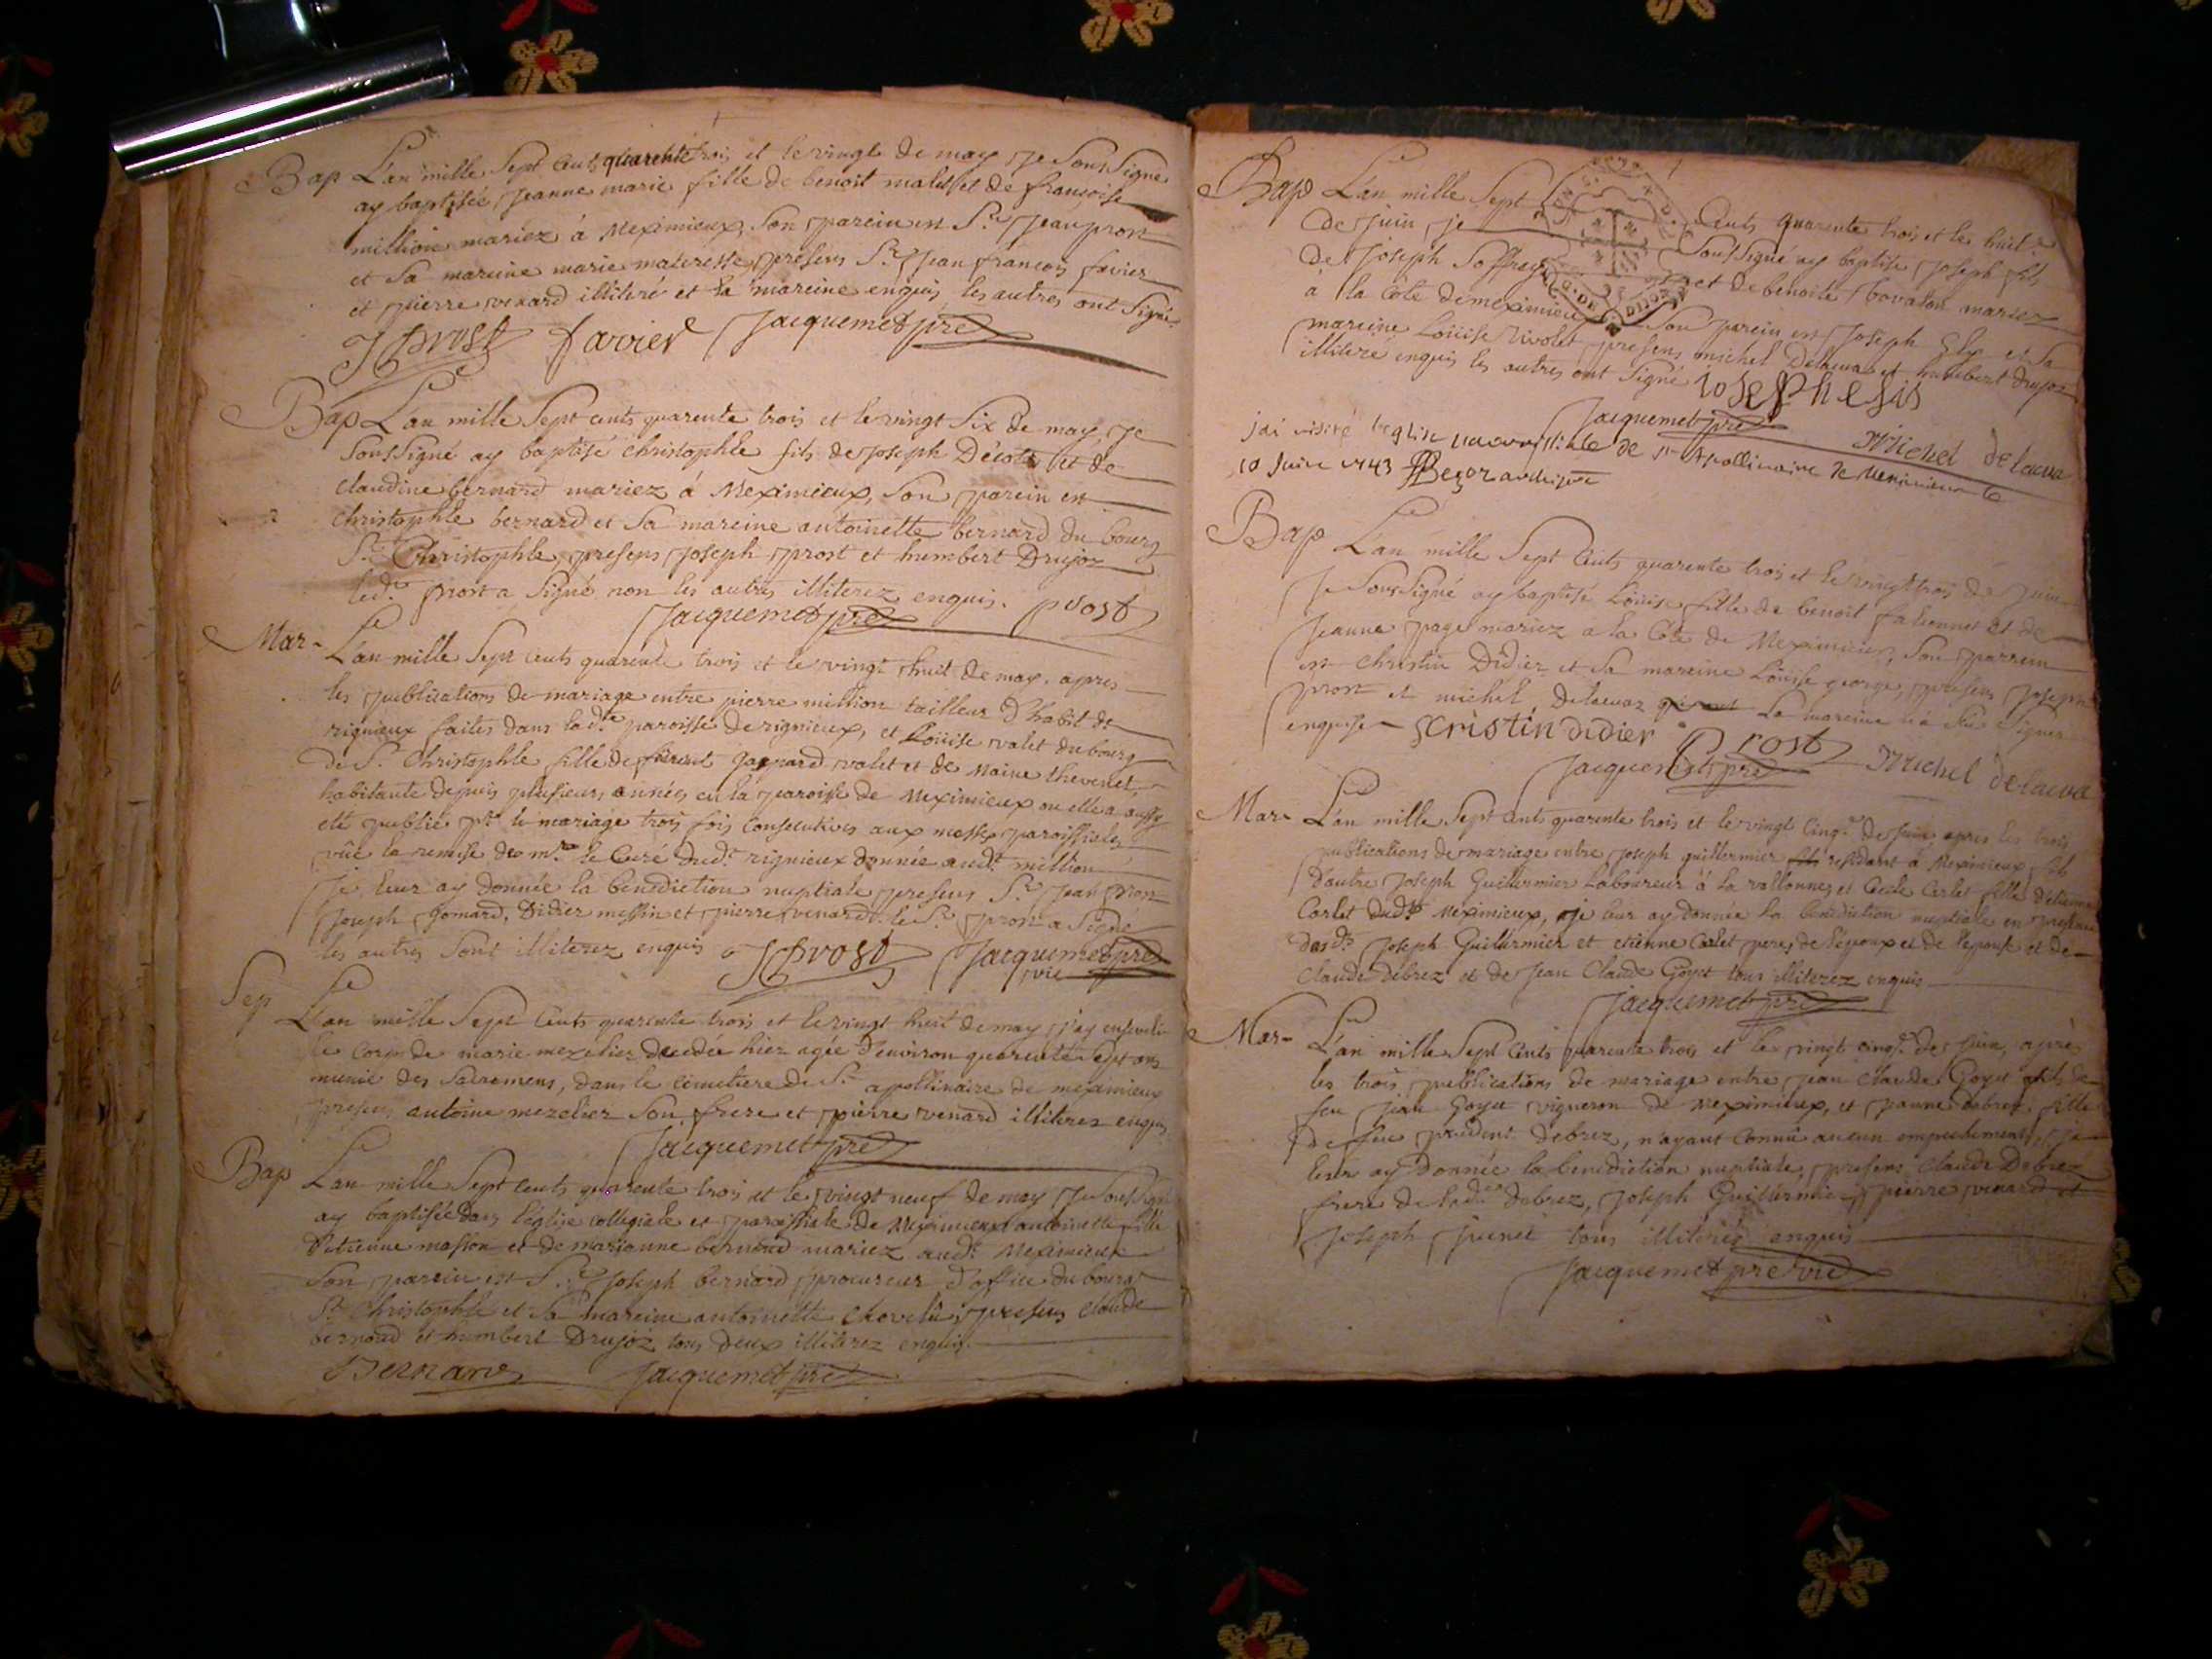 Bap L'an mille Sept Cents quarente trois et le vingt de may je Soussigné
ay baptisée jeanne marie fille de benoit malet et de francoise
million mariez à Meximieux, Son parein est Sr. jean prost
et Sa mareine marie materesse, presens Sr. jean françois favier
et pierre venard illiteré et la mareine enquis, les autres ont Signé.
JProst favier Jacquemet pre
Bap L'an mille Sept cents quarente trois et le vingt Six de may, je
Soussigné ay baptisé christophle fils de joseph Décote et de
claudine bernard mariez à Meximieux, Son parein est
christophle bernard et Sa mareine antoinette bernard du bourg
St. Christophle, presens joseph prost et humbert Drujoz
led. prost a Signé non les autres illiterez enquis. prost
Jacquemet pre
Mar- L'an mille Sept cents quarente trois et le vingt huit de may, apres
les publications de mariage entre pierre million tailleur d'habit de
rignieux faites dans lad.te paroisse de rignieux, et Loüise valet du bourg
de St. Christophle fille de Gaspard valet et de Maine thevenet
habitante depuis plusieurs années en la paroisse de Meximieux ou elle a aussy
eté publié pr. le mariage trois fois consecutives aux messes paroissiales
vûe la remise de mre. le Curé dud. rignieux donnée aud. million
je leur ay donnée la benediction nuptiale presens Sr. jean prost
joseph gomard, Didier messin et pierre venard. le Sr. prost a Signé
les autres Sont illiterez enquis JProst Jacquemet pre
vic
Sep L'an mille Sept Cents quarente trois et le vingt huit de may j'ay enseveli
le corps de marie mezelier decedée hier agée d'environ quarente Sept ans
munie des Sacremens, dans le cimetiere de St. apollinaire de meximieux
presens antoine mezelier Son frere et pierre venard illiterez enquis
Jacquemet pre
Bap L'an mille Sept cents quarente trois et le vingt neuf de may je Soussigné
ay baptisée dans l'église collegiale et paroissiale de Meximieux antoinette fille
d'etienne masson et de marianne bernard mariez aud. Meximieux
Son parein est Sr. joseph bernard procureur d'office du bourg
St. Christophle et Sa mareine antoinette chovelü, presens claude
bernard et humbert Drujoz tous deux illiterez enquis.
Bernard Jacquemet pre
Bap L'an mille Sept Cents quarente trois et le huit
de juin, je Soussigné ay baptisé joseph fils
de joseph Soffray et de benoite bovaton mariez
à la Cote de meximieux Son parein est joseph Gly et Sa
mareine Loüise rivolet presens michel Delaeuaz et humbert drujoz
illiteré enquis les autres ont Signé
Jacquemet pre Michel delaeva
j'ai visité l'eglise paroissiale de St Apollinaire de Meximieux le
10 juin 1743
Bap L'an mille Sept Cents quarente trois et le vingt trois de juin
je Soussigné ay baptisé Loüise fille de benoit falconnet et de
jeanne page mariez à la Cote de Meximieux, Son parrein
est christin Didier et Sa mareine Loüise george, presens joseph
prost et michel delaeuaz la mareine n'a Scu Signer
enquise scristin didier Prost
Jacquemet pre Michel delaeva
Mar- L'an mille Sept Cents quarente trois et le vingt cinq de juin apres les trois
publications de mariage entre joseph guillermier residant à Meximieux fils
d'autre joseph Guillermier laboureur à la vallonne et Cecile Carlet fille d'etienne
Carlet dud. Meximieux, je leur ay donnée la benediction nuptiale en presence
desd. joseph Guillermier et etienne Carlet peres de l'epoux et de l'epouse et de
claude debrez et de jean claude Goyet tous illiterez enquis
Jacquemet pre
Mar- L'an mille Sept Cents quarente trois et le vingt cinq de juin, après
les trois publications de mariage entre jean claude Goyet fils de
feu jean Goyet vigneron de Meximieux, et debrez fille
de feu prudent debrez, n'ayant connu aucun empechement, je
leur ay donnée la benediction nuptiale, presens claude Debrez
frere de lad. debrez, joseph Guillermier, pierre venard et
joseph junet tous illiterez enquis
Jacquemet pre vic